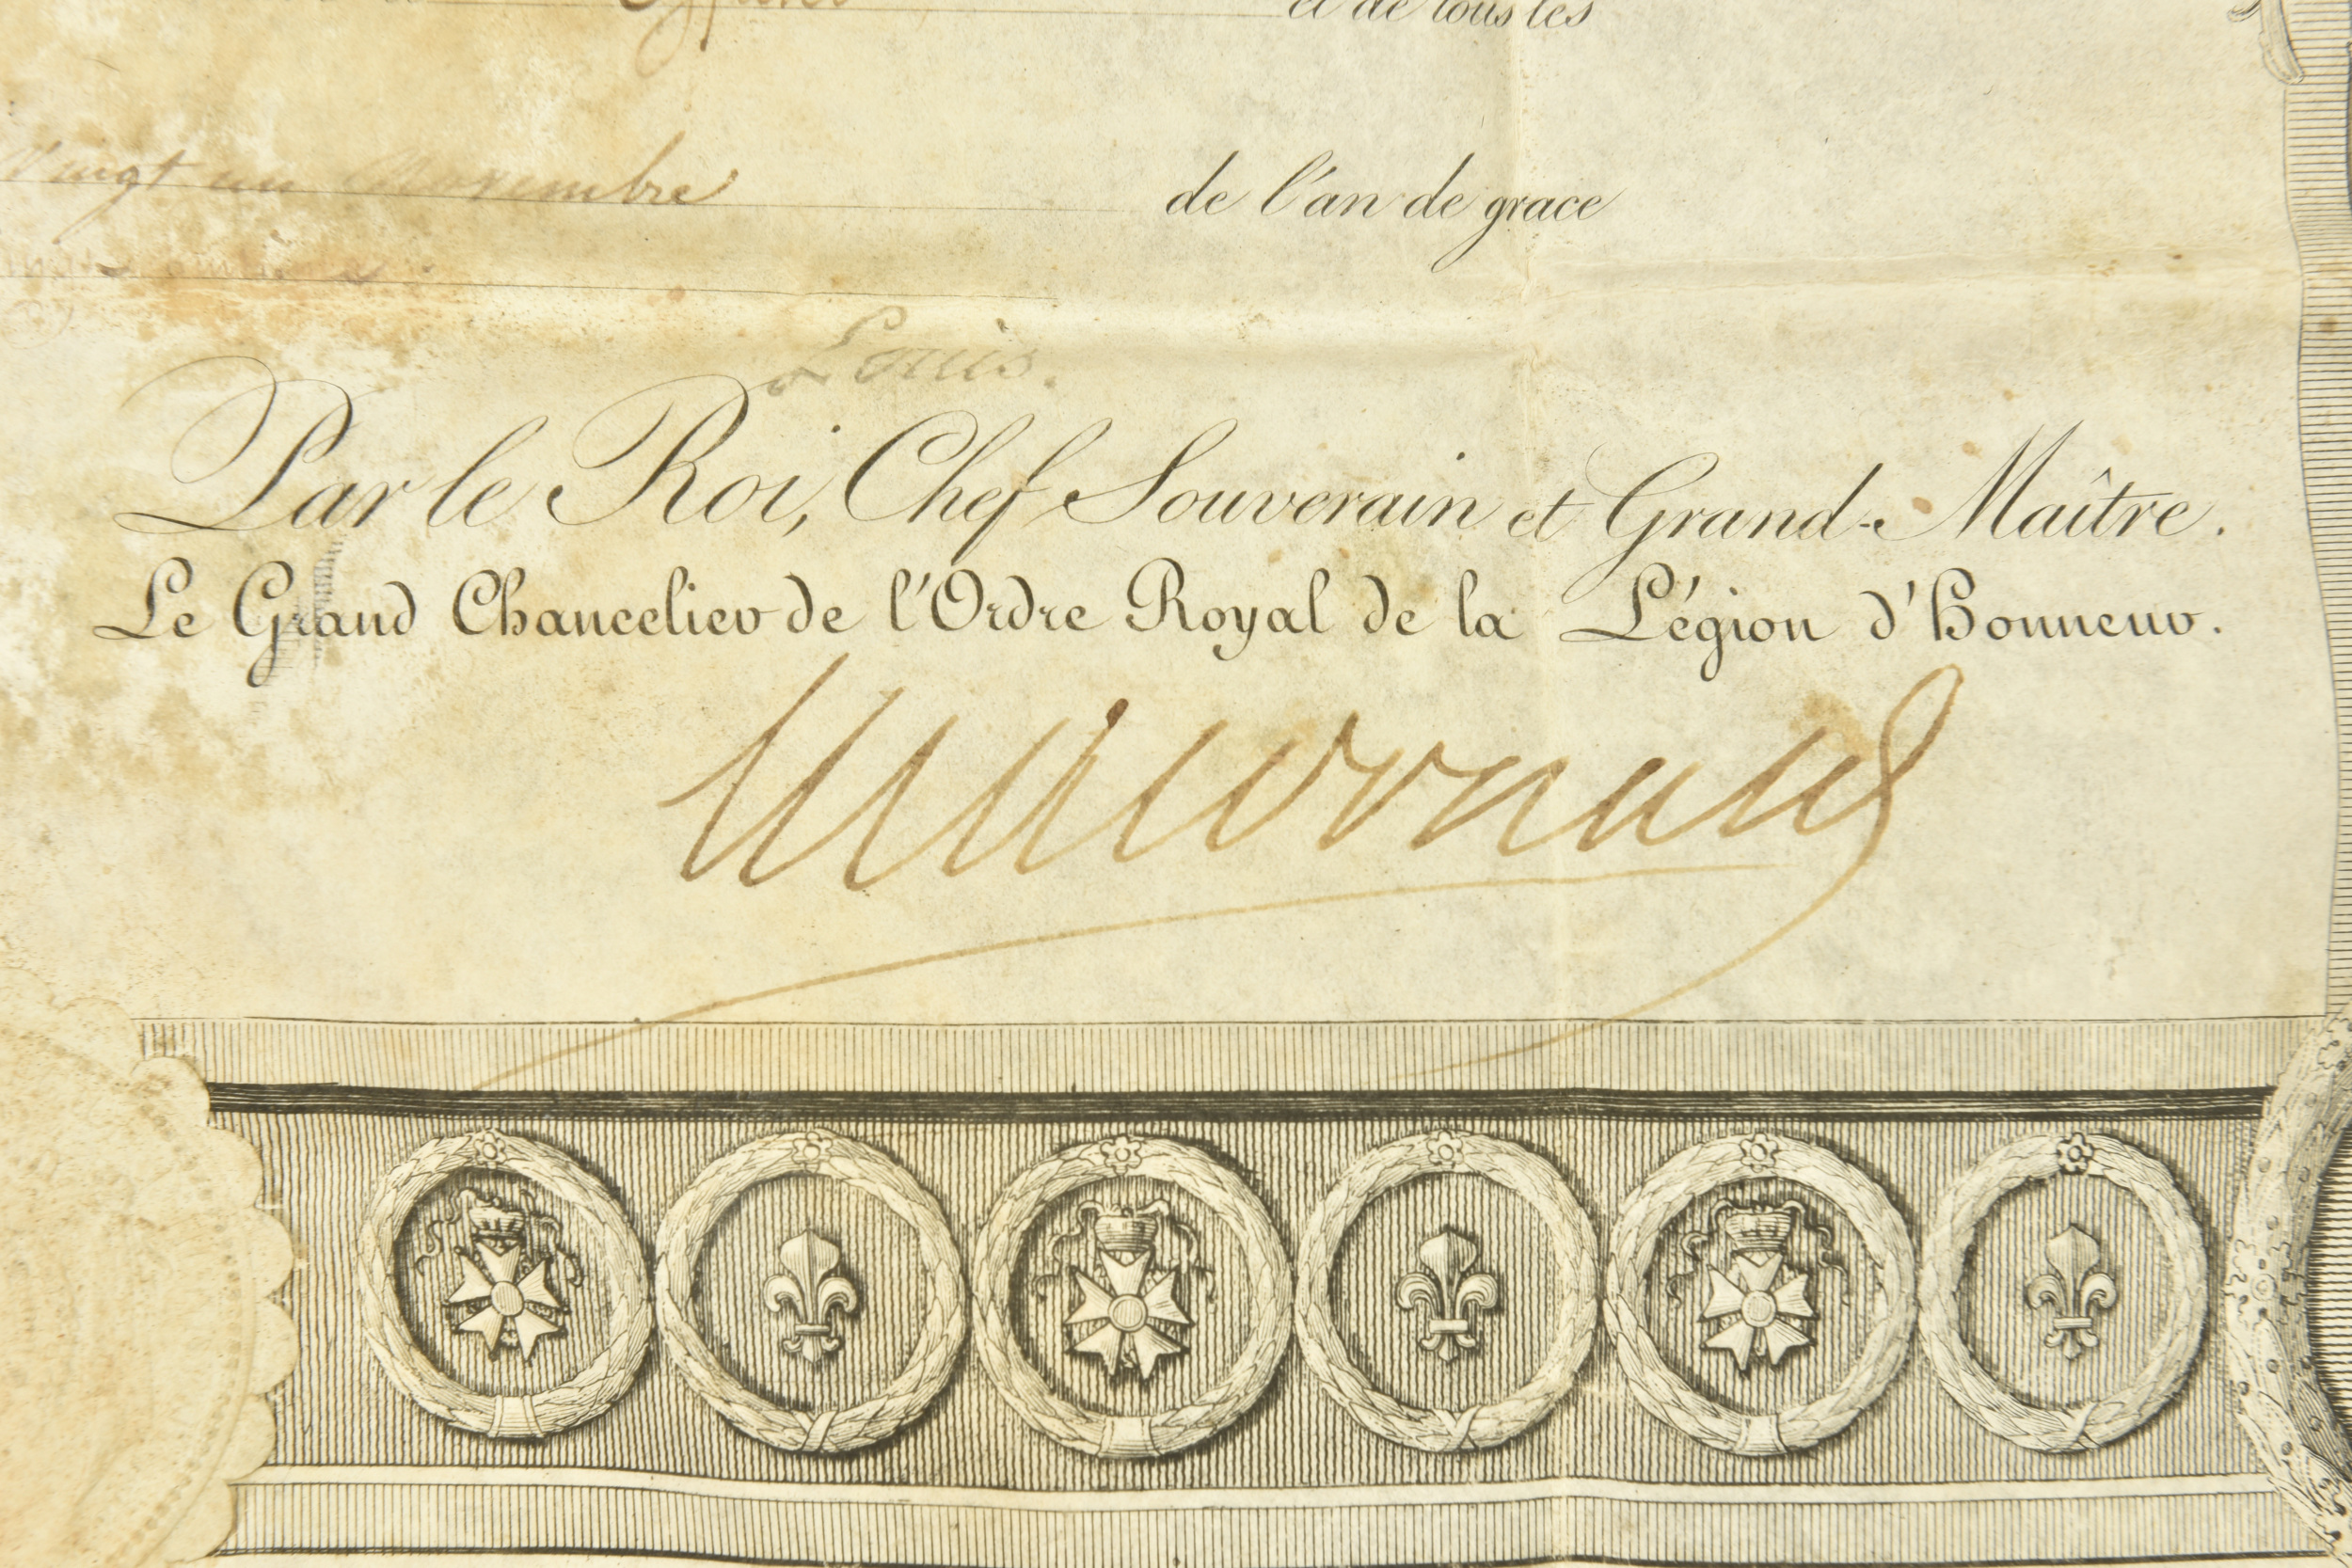 et de tous les
Vingt un Novembre de l'an de grace
Louis.
Par le Roi, Chef Souverain et Grand-Maître.
Le Grand Chancelier de l'Ordre Royal de la Légion d'Honneur.